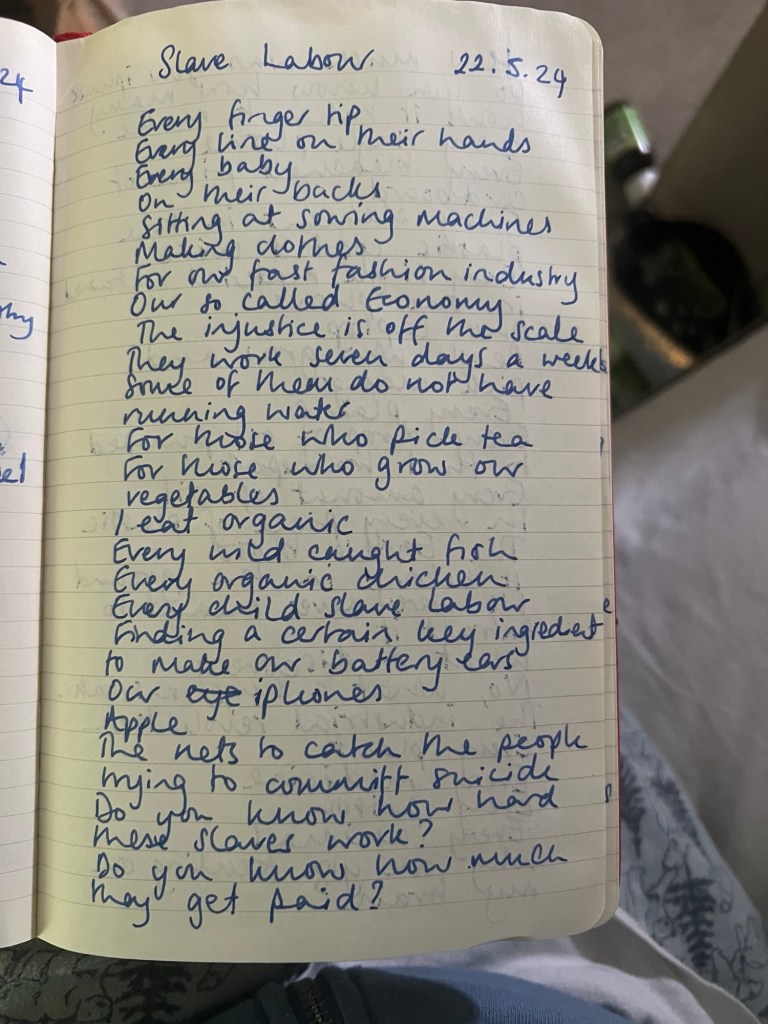 Slave Labour. 22.5.24
Every finger tip
Every line on their hands
Every baby
On their backs
Sitting at sowing machines
Making clothes
For our fast fashion industry
Our so called Economy
The injustice is off the scale
They work seven days a week
Some of them do not have
running water
For those who pick tea
For those who grow our
vegetables
I eat organic
Every wild caught fish
Every organic chicken.
Every child slave labour
Finding a certain key ingredient
to make our battery cars
Our eye iphones
Apple
The nets to catch the people
trying to committ suicide
Do you know how hard
these slaves work?
Do you know how much
they get paid?